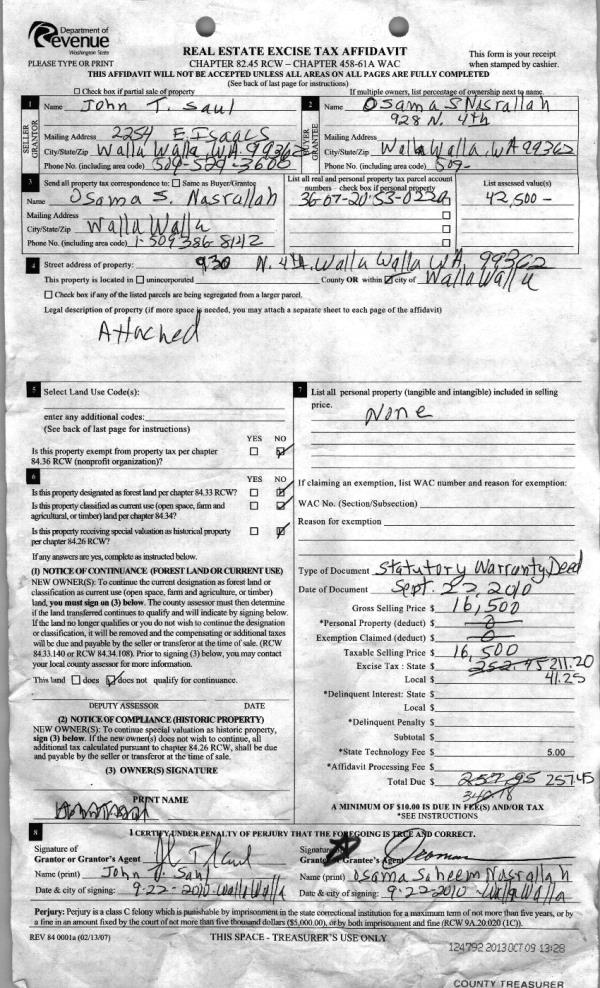 Department of
Revenue
Washington State
PLEASE TYPE OR PRINT
REAL ESTATE EXCISE TAX AFFIDAVIT
CHAPTER 82.45 RCW – CHAPTER 458-61A WAC
This form is your receipt
when stamped by cashier.
THIS AFFIDAVIT WILL NOT BE ACCEPTED UNLESS ALL AREAS ON ALL PAGES ARE FULLY COMPLETED
(See back of last page for instructions)
Check box if partial sale of property
If multiple owners, list percentage of ownership next to name.
1 Name John T. Saul
SELLER
GRANTOR
Mailing Address 2254 E. Isaacs
City/State/Zip Walla Walla WA. 99362
Phone No. (including area code) 509-529-3600
2 Name Osama S Nasrallah
928 N. 4th
BUYER
GRANTEE
Mailing Address
City/State/Zip Walla Walla, WA 99362
Phone No. (including area code) 509-
3 Send all property tax correspondence to: Same as Buyer/Grantee
Name Osama S. Nasrallah
Mailing Address
City/State/Zip Walla Walla
Phone No. (including area code) 1-509 386 8142
List all real and personal property tax parcel account
numbers – check box if personal property
36-07-20-53-0220
List assessed value(s)
42,500 -
4 Street address of property: 930 N. 4th. Walla Walla WA, 99362
This property is located in unincorporated County OR within city of Walla Walla
Check box if any of the listed parcels are being segregated from a larger parcel.
Legal description of property (if more space is needed, you may attach a separate sheet to each page of the affidavit)
Attached
5 Select Land Use Code(s):
enter any additional codes:
(See back of last page for instructions)
YES NO
Is this property exempt from property tax per chapter
84.36 RCW (nonprofit organization)?
6
YES NO
Is this property designated as forest land per chapter 84.33 RCW?
Is this property classified as current use (open space, farm and
agricultural, or timber) land per chapter 84.34?
Is this property receiving special valuation as historical property
per chapter 84.26 RCW?
If any answers are yes, complete as instructed below.
(1) NOTICE OF CONTINUANCE (FOREST LAND OR CURRENT USE)
NEW OWNER(S): To continue the current designation as forest land or
classification as current use (open space, farm and agriculture, or timber)
land, you must sign on (3) below. The county assessor must then determine
if the land transferred continues to qualify and will indicate by signing below.
If the land no longer qualifies or you do not wish to continue the designation
or classification, it will be removed and the compensating or additional taxes
will be due and payable by the seller or transferor at the time of sale. (RCW
84.33.140 or RCW 84.34.108). Prior to signing (3) below, you may contact
your local county assessor for more information.
This land does does not qualify for continuance.
DEPUTY ASSESSOR DATE
(2) NOTICE OF COMPLIANCE (HISTORIC PROPERTY)
NEW OWNER(S): To continue special valuation as historic property,
sign (3) below. If the new owner(s) does not wish to continue, all
additional tax calculated pursuant to chapter 84.26 RCW, shall be due
and payable by the seller or transferor at the time of sale.
(3) OWNER(S) SIGNATURE
PRINT NAME
7 List all personal property (tangible and intangible) included in selling
price.
None
If claiming an exemption, list WAC number and reason for exemption:
WAC No. (Section/Subsection)
Reason for exemption
Type of Document Statutory Warranty Deed
Date of Document Sept. 22, 2010
Gross Selling Price $ 16,500
*Personal Property (deduct) $ 0
Exemption Claimed (deduct) $ 0
Taxable Selling Price $ 16,500
Excise Tax : State $ 252.45 211.20
Local $ 41.25
*Delinquent Interest: State $
Local $
*Delinquent Penalty $
Subtotal $
*State Technology Fee $ 5.00
*Affidavit Processing Fee $
Total Due $ 257.95 257.45
340.18
A MINIMUM OF $10.00 IS DUE IN FEE(S) AND/OR TAX
*SEE INSTRUCTIONS
8 I CERTIFY UNDER PENALTY OF PERJURY THAT THE FOREGOING IS TRUE AND CORRECT.
Signature of
Grantor or Grantor's Agent
Name (print) John T. Saul
Date & city of signing: 9-22-2010 Walla Walla
Signature of
Grantee or Grantee's Agent
Name (print) Osama Saheem Nasrallah
Date & city of signing: 9-22-2010 - Walla Walla
Perjury: Perjury is a class C felony which is punishable by imprisonment in the state correctional institution for a maximum term of not more than five years, or by
a fine in an amount fixed by the court of not more than five thousand dollars ($5,000.00), or by both imprisonment and fine (RCW 9A.20.020 (1C)).
REV 84 0001a (02/13/07)
THIS SPACE - TREASURER'S USE ONLY
124792 2013 OCT 09 13:28
COUNTY TREASURER